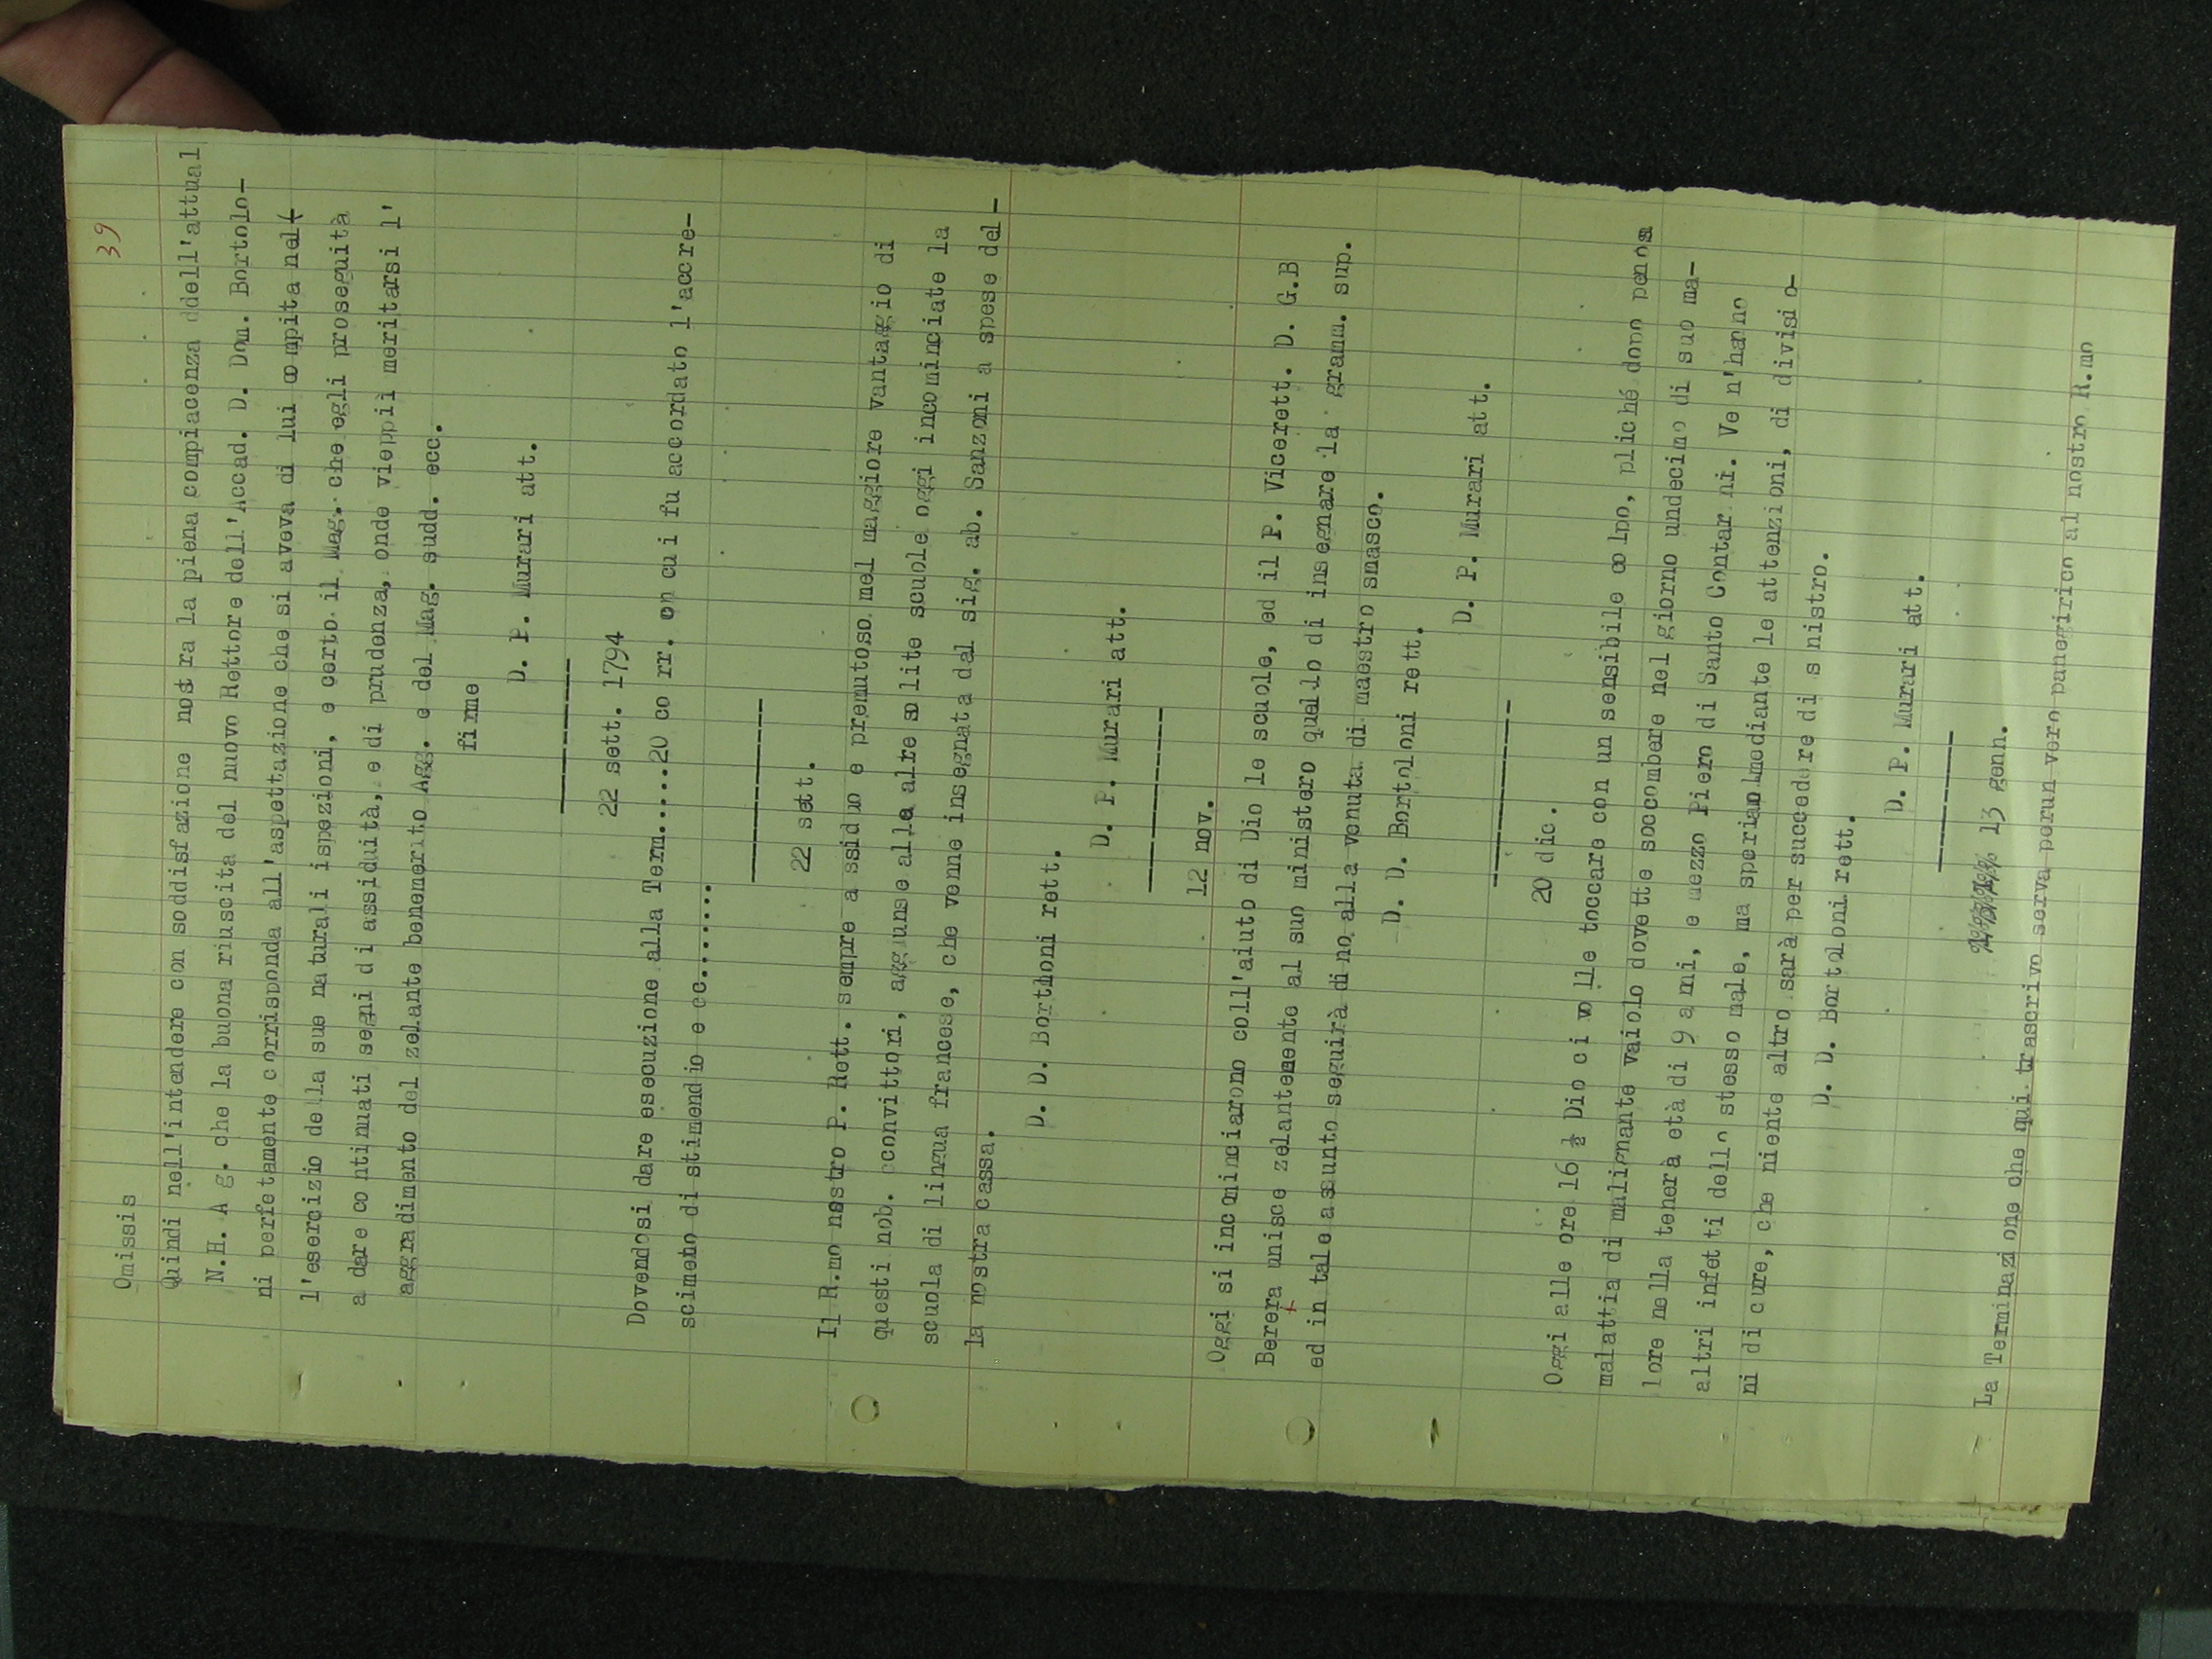 39
Omissis
Quindi nell'intendere con soddisfazione nost ra la piena compiacenza ddell'attual
N.H. A g. che la buona riuscita del nuovo Rettore dell'Accad. D. Dom. Bortolo-
ni perfetamente corrisponda all'aspettazione che si aveva di lui co mpita nel
l'esercizio de lla sue naturali ispezioni, e certo il Mag. che egli proseguità
a dare co ntinuati segni di assiduità, e di prudenza, onde vieppiù meritarsi l'
aggradimento del zelante benemerito Agg. e del Mag. sudd. ecc.
firme
D. P. Murari att.
22 sett. 1794
Dovendosi dare esecuzione alla Term.....20 co rr. con cui fu accordato l'accre-
scimento di stimendio e cc........
22 sett.
Il R.mo nostro P. Rett. sempre a ssiduo e premutoso nel maggiore vantaggio di
questi nob. cconvittori, agg unse alle altre so lite scuole oggi incominciate la
scuola di lingua francese, che venne insegnata dal sig. ab. Sanzoni a spese del-
la nostra cassa.
D. D. Bortlloni rett.
D. P. Murari att.
12 nov.
Oggi si incominciarono coll'aiuto di Dio le scuole, ed il P. Vicerett. D. G.B
Berera unisce zelantemente al suo ministero quello di insegnare la gramm. sup.
ed in tale assunto seguirà di no alla venuta di maestro smasco.
D. D. Bortoloni rett.
D. P. Murari att.
20 dic.
Oggi alle ore 16 ½ Dio ci vo lle toccare con un sensibile co lpo, pliché dopo penosa
malattia di malignante vaiolo dovette soccombere nel giorno undecimo di suo ma-
lore nella tenera età di 9 a mi, e mezzo Piero di Santo Contar ni. Ve n'hanno
altri infet ti dello stesso male, ma speriamo mediante le attenzioni, di divisi o-
ni di cure, che niente altro sarà per succedere di s nistro.
D. D. Bortoloni rett.
D. P. Murari att.
13 genn.
La Terminazi one che qui trascrivo serva perun vero panegirico al nostro R.mo